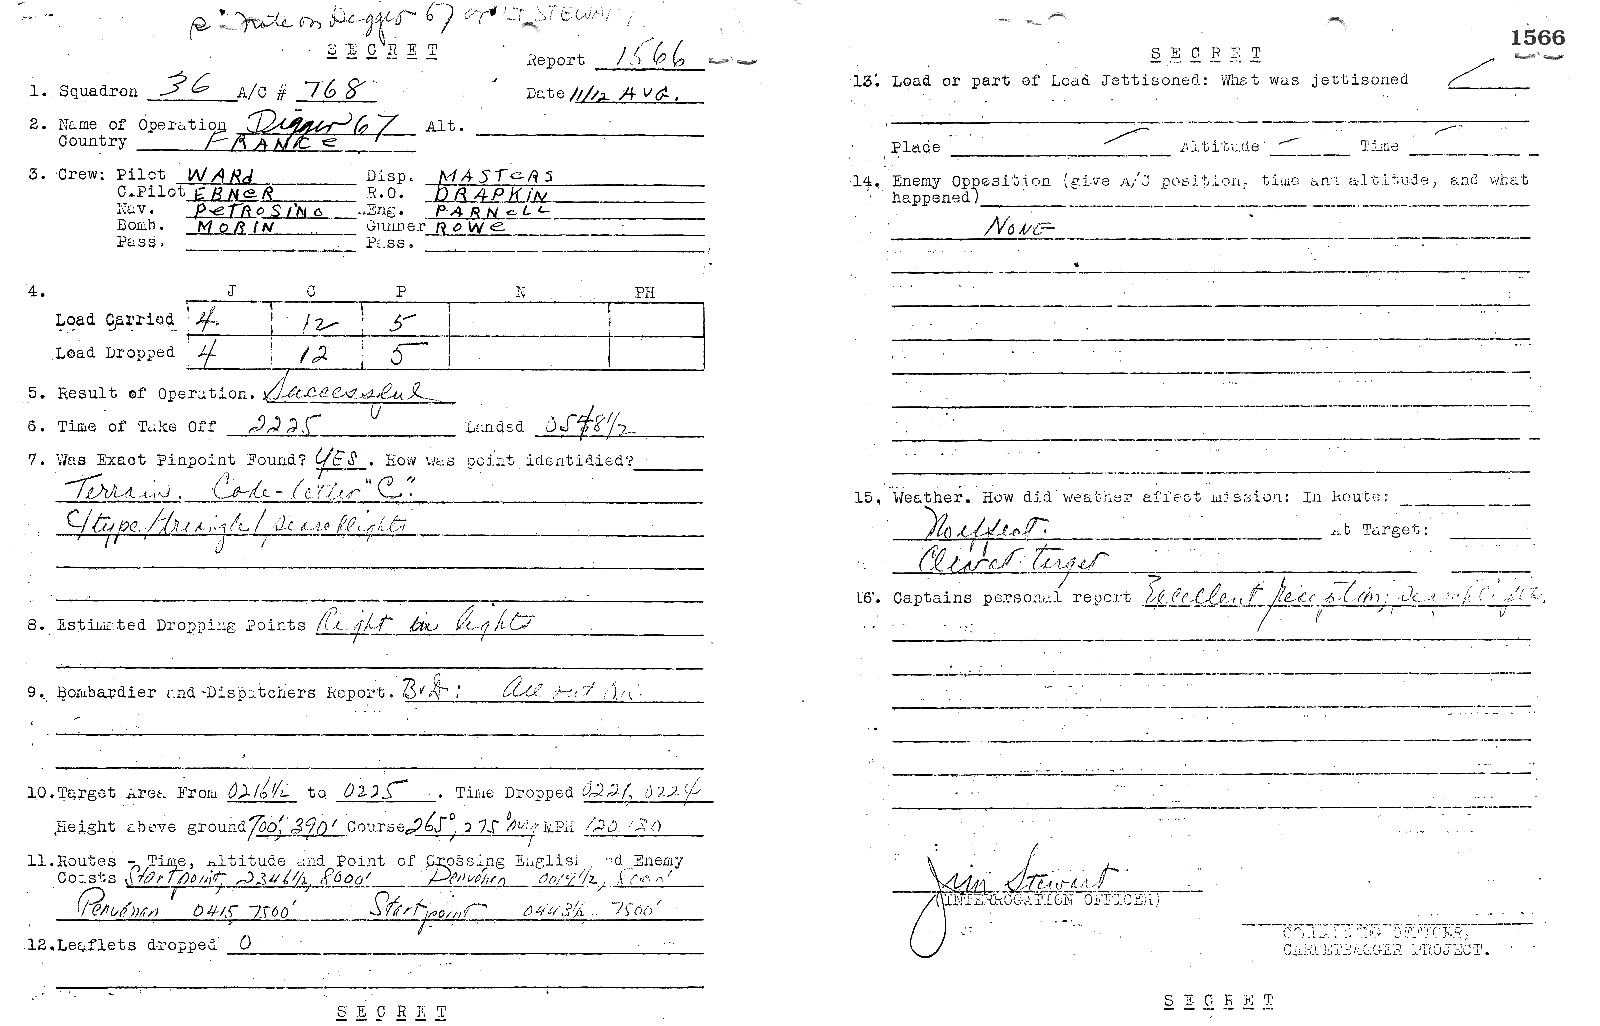 Note on Digger 67 LT STEWART
SECRET
Report 1566
1. Squadron 36 A/C # 768 Date 11/12 AUG.
2. Name of Operation Digger 67 Alt.
Country FRANCE
3. Crew: Pilot WARD Disp. MASTERS
C.Pilot EBNER R.O. DRAPKIN
Nav. PETROSINO Eng. PARNELL
Bomb. MORIN Gunner ROWE
Pass. Pass.
4. J C P N PH
Load Carried 4 12 5
Load Dropped 4 12 5
5. Result of Operation. Successful
6. Time of Take Off 2225 Landed
7. Was Exact Pinpoint Found? YES. How was point identidied?
Terrain. Code-letter "C".
C/type/triangle/searchlights
8. Estimated Dropping Points Right on lights
9. Bombardier and Dispatchers Report. B&D: All out
10. Target Area From 0216½ to 0225. Time Dropped 0221, 0224
Height above ground 700', 390' Course 265°, 275° MPH 120 130
11. Routes - Time, Altitude and Point of Crossing English and Enemy
Coasts Startpoint, 2346½, 8000' 0019½,
0415 7500' Startpoint 0443½ 7500'
12. Leaflets dropped 0
SECRET
1566
SECRET
13. Load or part of Load Jettisoned: What was jettisoned
Place Altitude Time
14. Enemy Opposition (give A/C position, time and altitude, and what
happened)
NONE
15. Weather. How did weather affect mission: In Route:
No effect. At Target:
Clear at target
16. Captains personal report Excellent reception, searchlights
Jim Stewart
(INTERROGATION OFFICER)
COMMANDING OFFICER,
CARPETBAGGER PROJECT.
SECRET